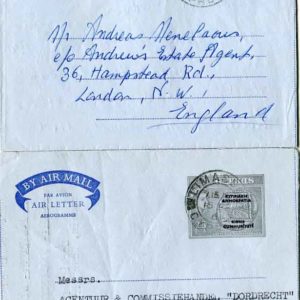 Mr Andreas Menelaous,
c/o Andrew's Estate Agent,
36, Hampstead Rd.,
London, N.W.1
England
BY AIR MAIL
PAR AVION
AIR LETTER
AEROGRAMME
ΚΥΠΡΙΑΚΗ
ΔΗΜΟΚΡΑΤΙΑ
KIBRIS
CUMHURIYETI
Messrs.
AGENTUUR & COMMISSIEHANDEL "DORDRECHT"